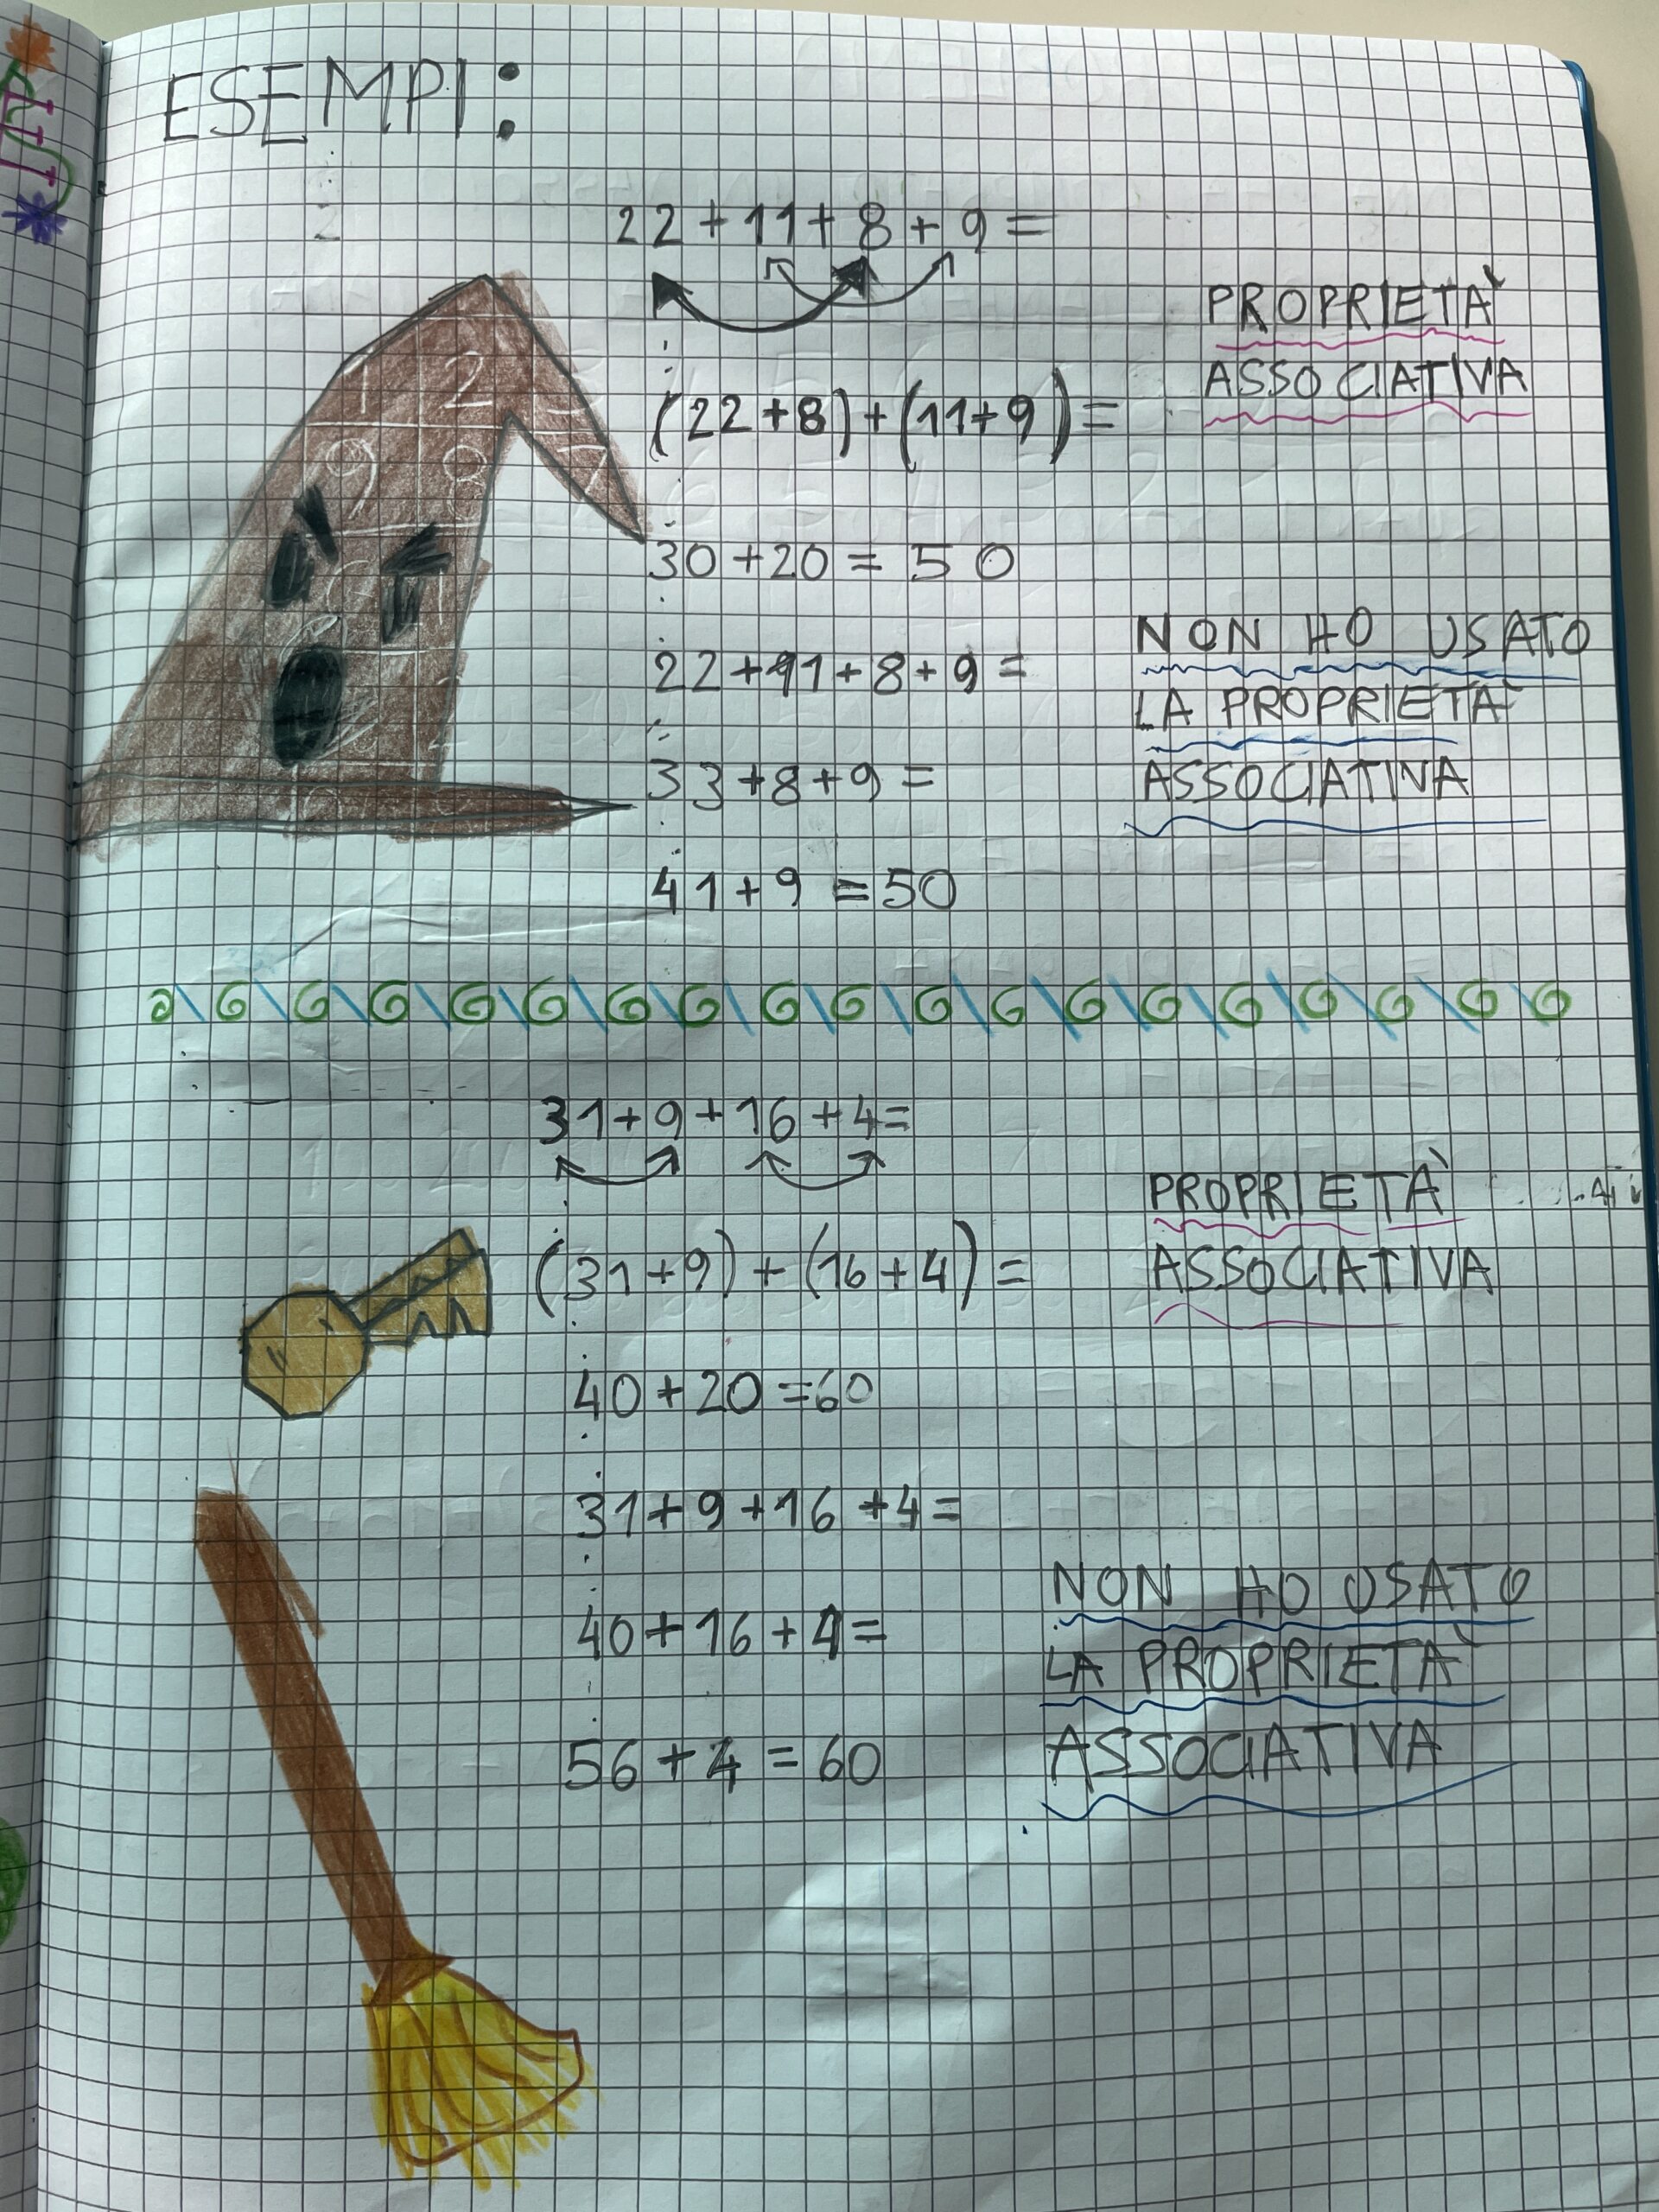 ESEMPI:
22+11+8+9=
PROPRIETÀ
ASSOCIATIVA
(22+8)+(11+9)=
30+20=50
NON HO USATO
LA PROPRIETÀ
ASSOCIATIVA
22+11+8+9=
33+8+9=
41+9=50
31+9+16+4=
PROPRIETÀ
ASSOCIATIVA
(31+9)+(16+4)=
40+20=60
31+9+16+4=
NON HO USATO
LA PROPRIETÀ
ASSOCIATIVA
40+16+4=
56+4=60